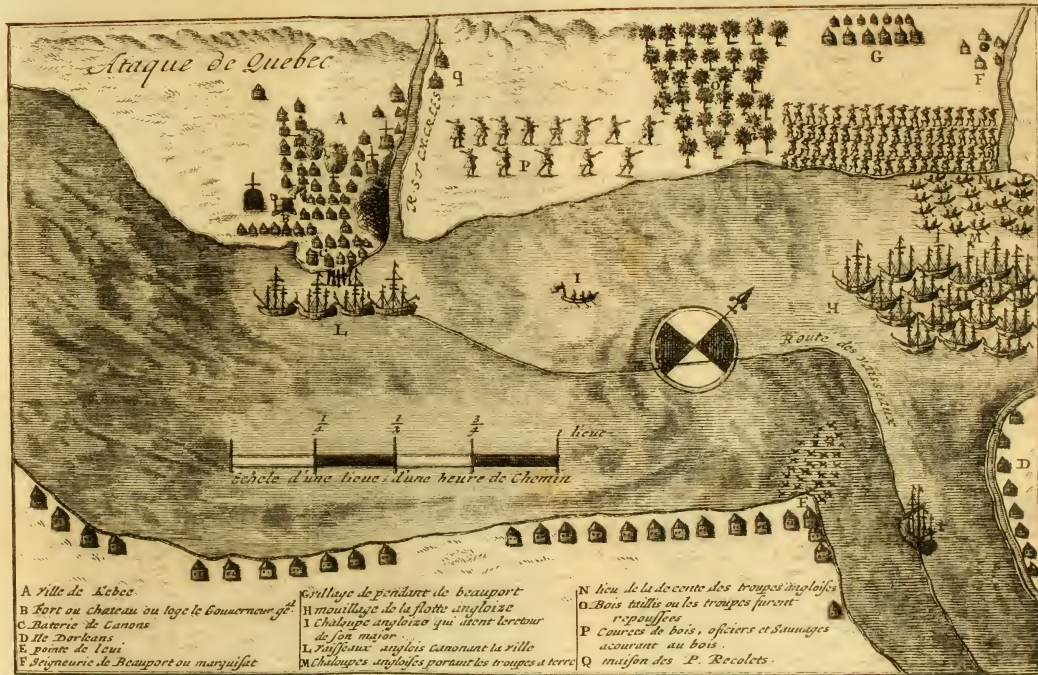 Ataque de Quebec
A
B
L
R St CXARLES
q
P
O
G
F
I
M
H
Route des vaisseaux
D
1/4
1/3
3/4
1 lieue
Echele d'une lieue, d'une heure de Chemin
A ville de Kebec.
B Fort ou chateau ou loge le Gouuerneur gēl
C Baterie de Canons
D Ile Dorleans
E pointe de leui
F Seigneurie de Beauport ou marquisat
G village de pendant de beauport
H mouillage de la flotte angloize
I Chaloupe angloize qui atent leretour
de son major.
L vaisseaux anglois canonant la ville
M Chaloupes angloises portant les troupes a terre
N lieu de la decente des troupes angloises
O Bois taillis ou les troupes furent
repoussées
P Courees de bois, oficiers et Sauuages
acourant au bois.
Q maison des P. Recolets.